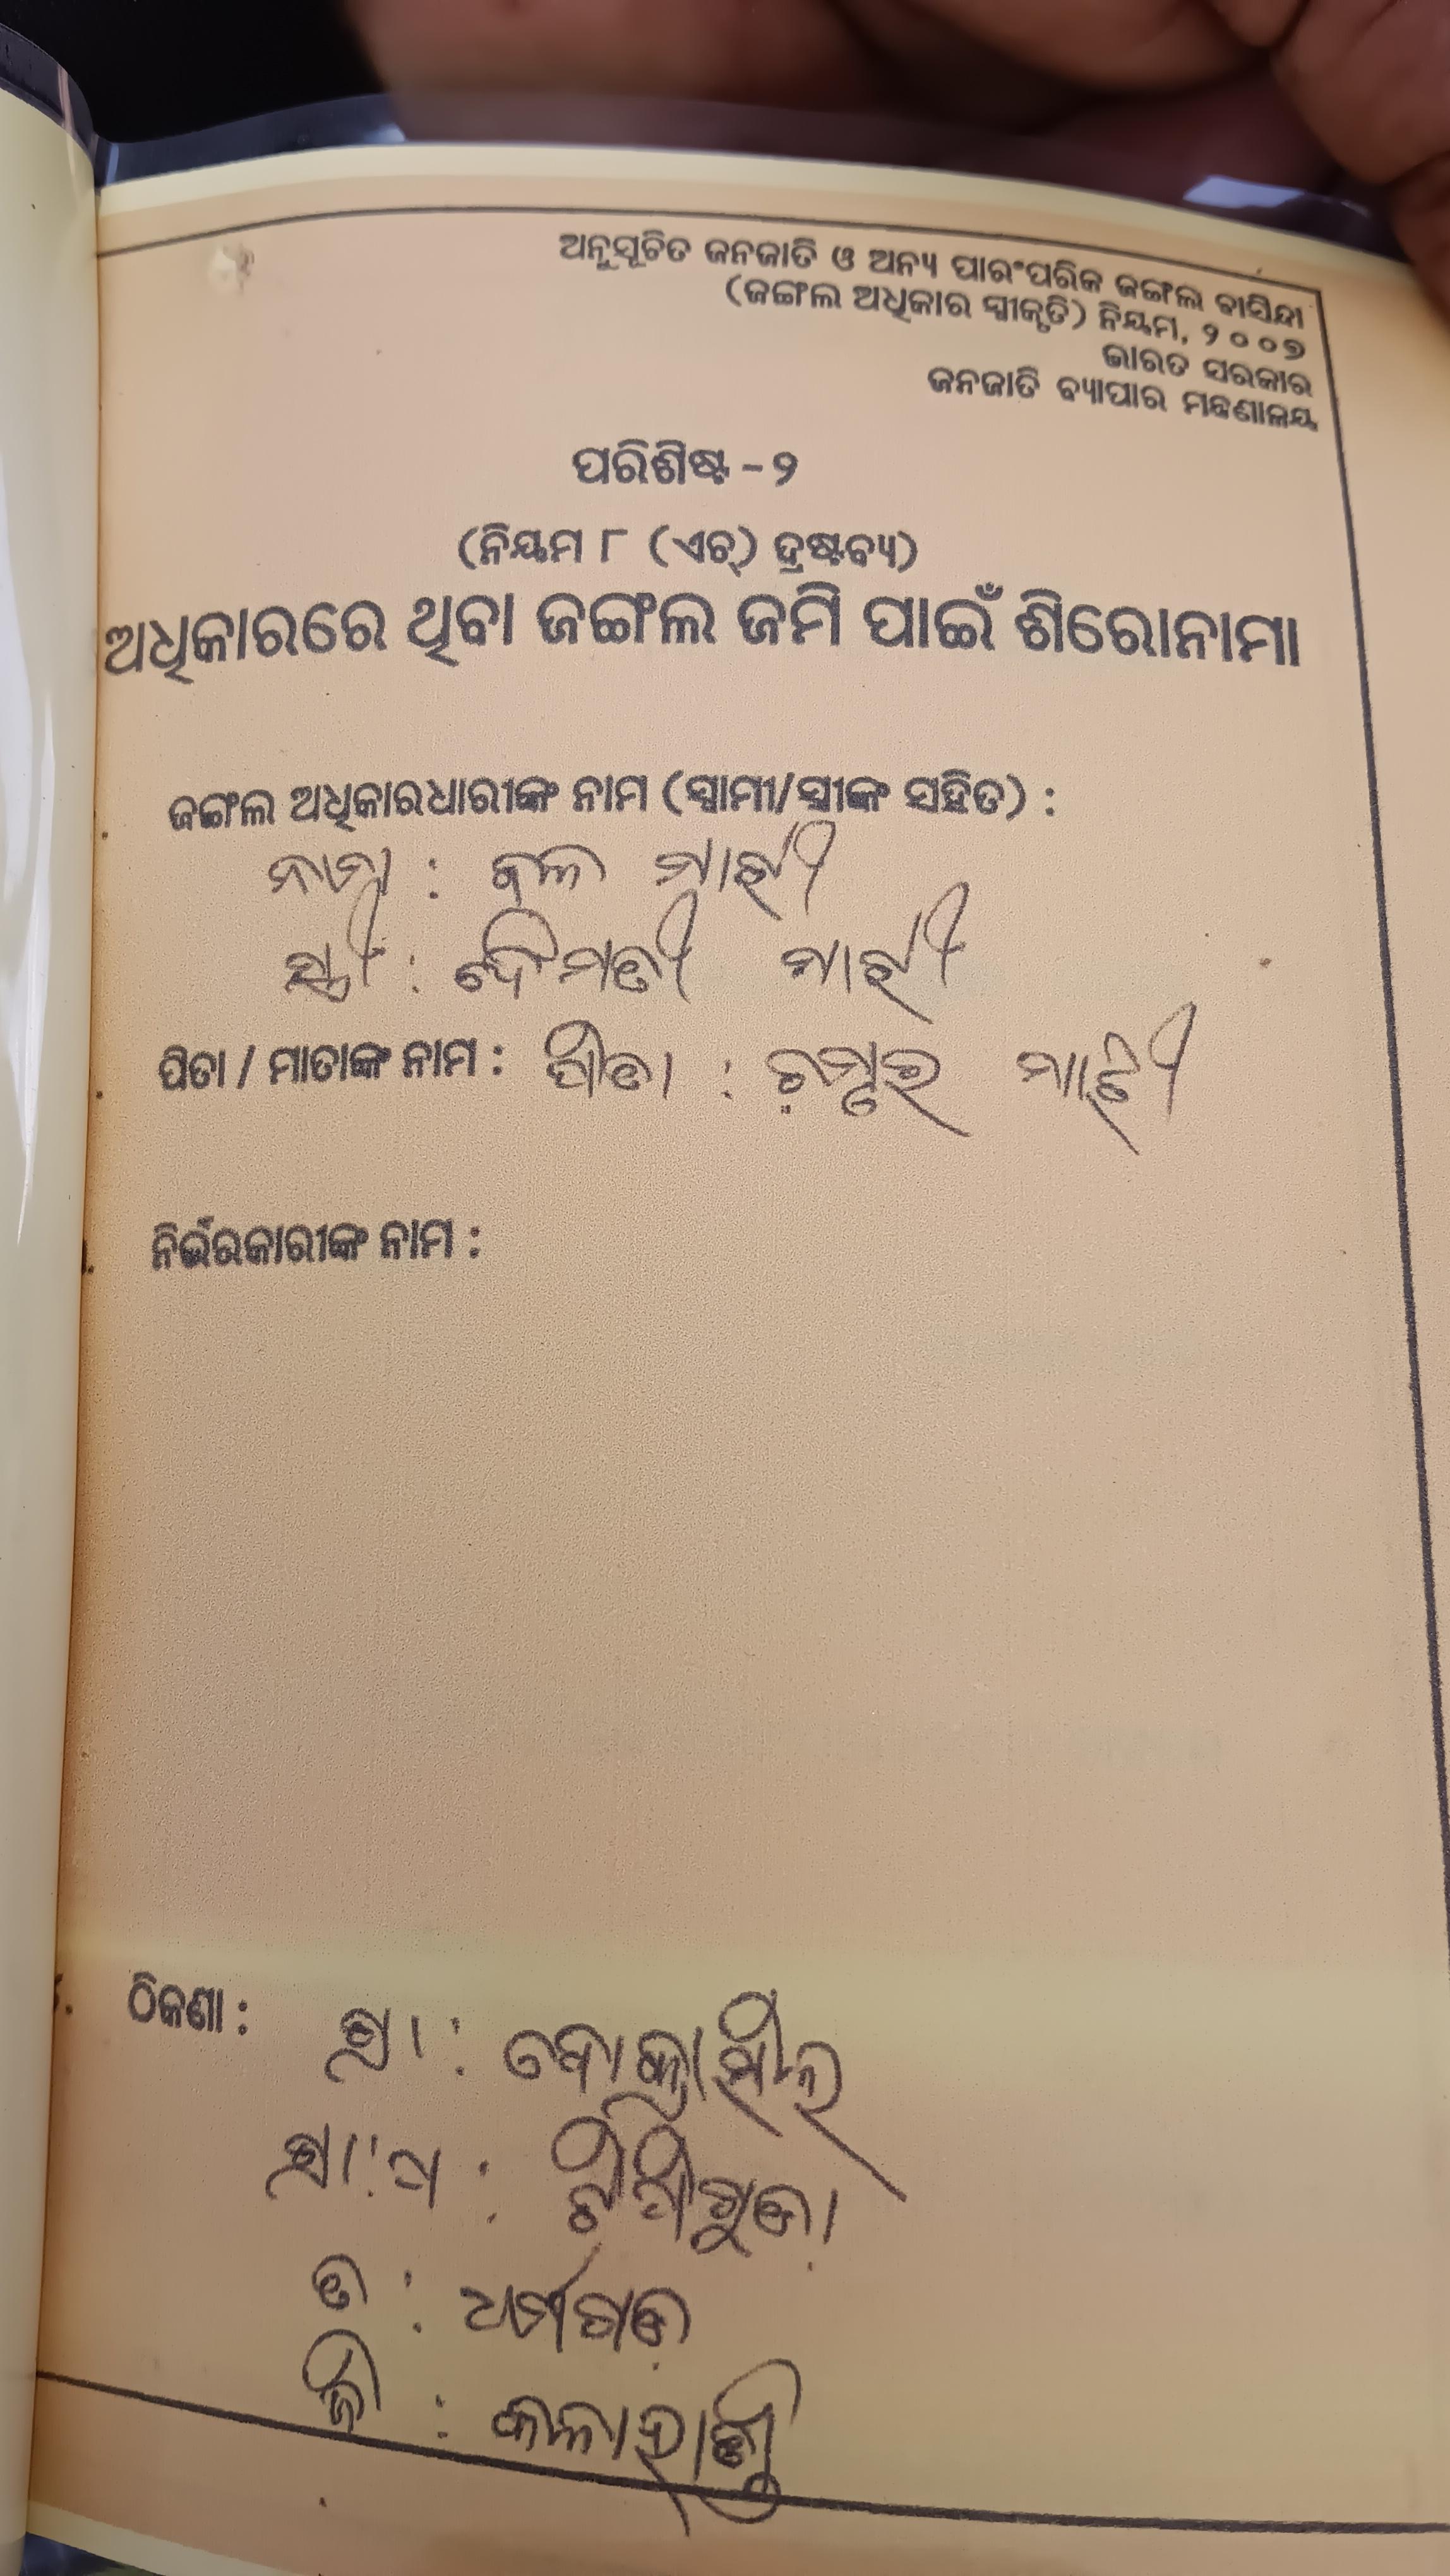 ଅନୁସୂଚିତ ଜନଜାତି ଓ ଅନ୍ୟ ପାରଂପରିକ ଜଙ୍ଗଲ ବାସିନ୍ଦା
(ଜଙ୍ଗଲ ଅଧିକାର ସ୍ୱୀକୃତି) ନିୟମ, ୨୦୦୭
ଭାରତ ସରକାର
ଜନଜାତି ବ୍ୟାପାର ମନ୍ତ୍ରଣାଳୟ
ପରିଶିଷ୍ଟ - ୨
(ନିୟମ ୮ (ଏଚ୍) ଦ୍ରଷ୍ଟବ୍ୟ)
ଅଧିକାରରେ ଥିବା ଜଙ୍ଗଲ ଜମି ପାଇଁ ଶିରୋନାମା
ଜଙ୍ଗଲ ଅଧିକାରଧାରୀଙ୍କ ନାମ (ସ୍ୱାମୀ/ସ୍ତ୍ରୀଙ୍କ ସହିତ) :
ନାମ : ମାଝୀ
ସ୍ତ୍ରୀ : ମାଝୀ
ପିତା / ମାତାଙ୍କ ନାମ : ପିତା : ମାଝୀ
ନିର୍ଭରକାରୀଙ୍କ ନାମ :
ଠିକଣା : ଗ୍ରା :
ଗ୍ରା.ପ :
ତ : ଧର୍ମଗଡ଼
ଜି : କଳାହାଣ୍ଡି